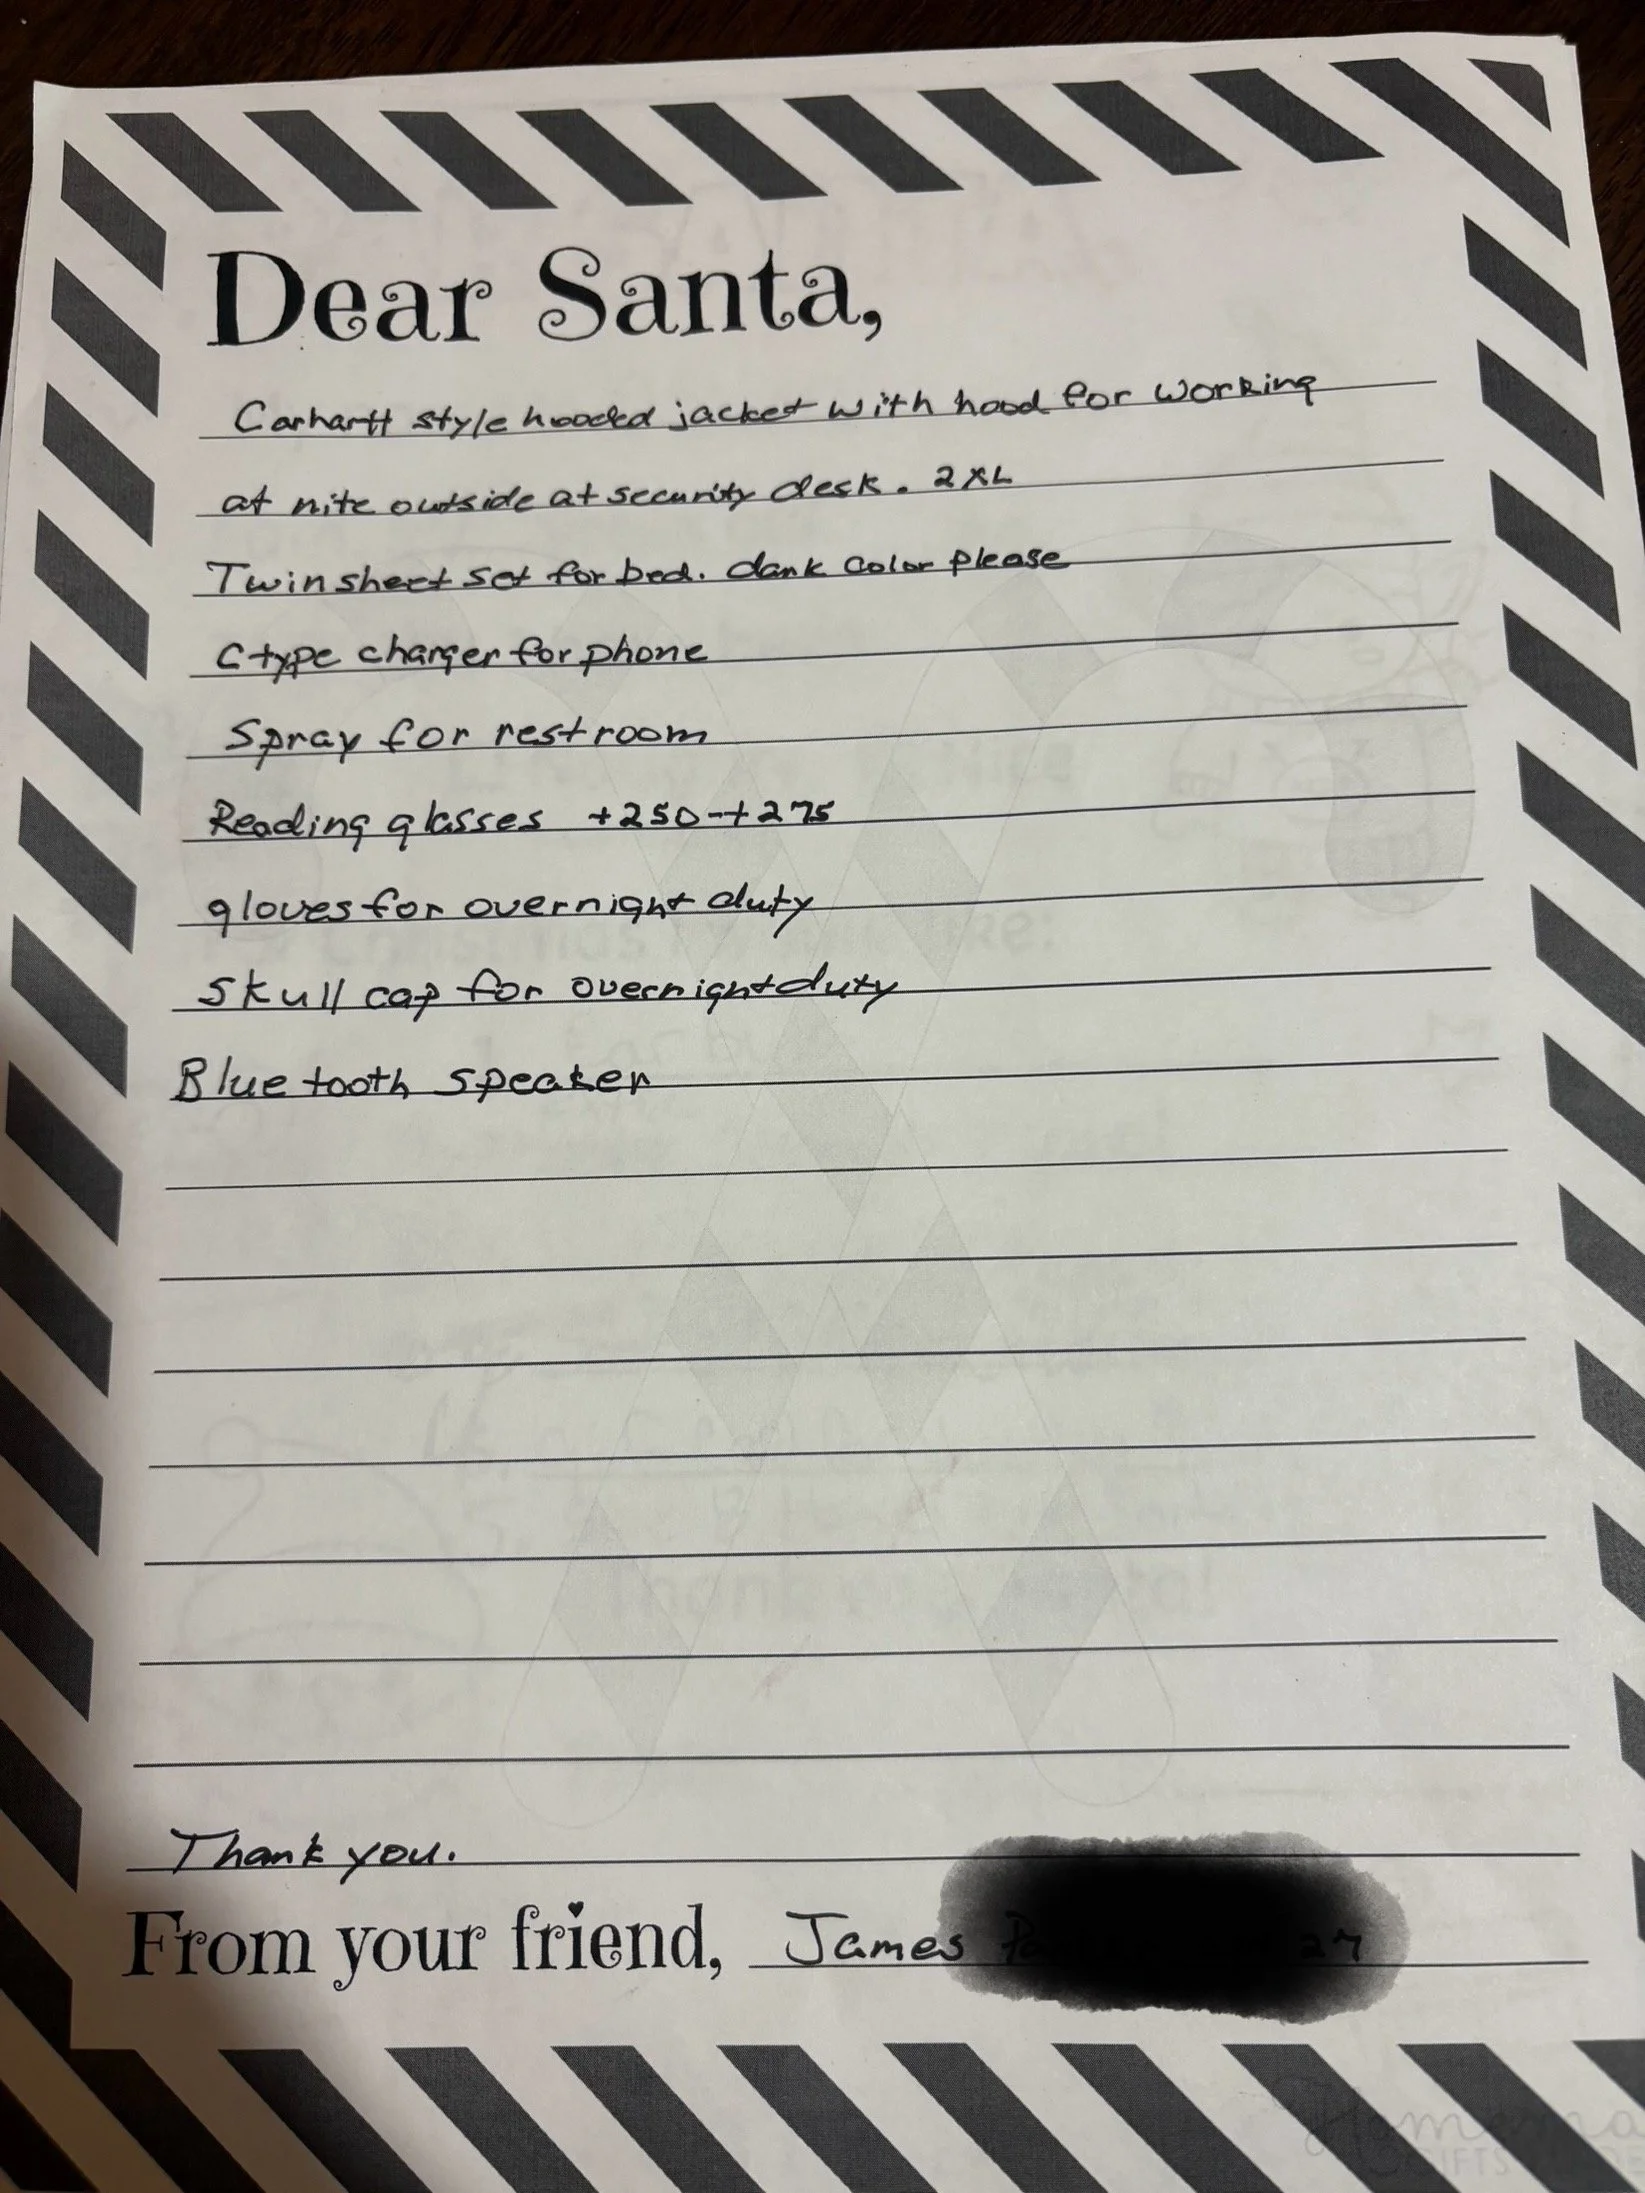 Dear Santa,
Carhartt style hooded jacket with hood for working
at nite outside at security desk. 2XL
Twin sheet set for bed. dark color please
C type charger for phone
Spray for restroom
Reading glasses +250-+275
gloves for overnight duty
Skull cap for overnight duty
Bluetooth speaker
Thank you.
From your friend, James